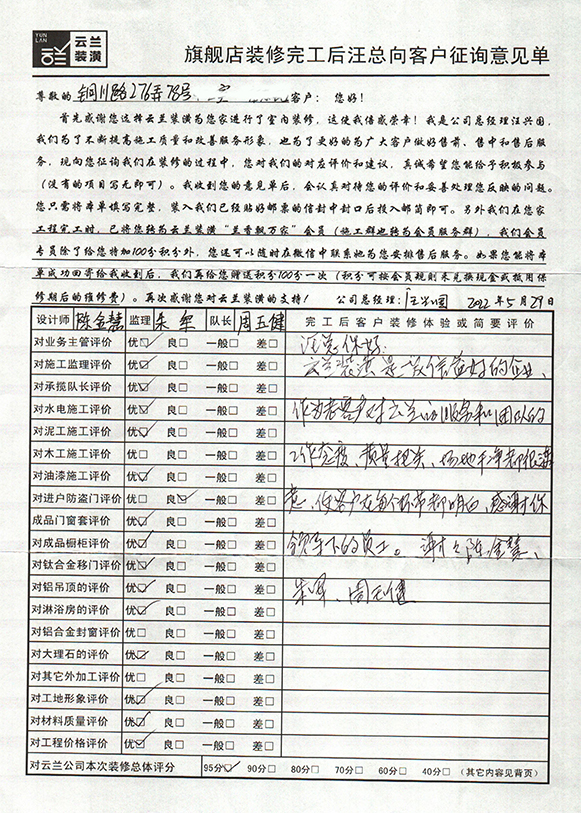 YUN LAN
云兰装潢
旗舰店装修完工后汪总向客户征询意见单
尊敬的 铜川路276弄78号 客户：您好！
首先感谢您选择云兰装潢为您家进行了室内装修，这使我倍感荣幸！我是公司总经理汪兴国，
我们为了不断提高施工质量和改善服务形象，也为了更好的为广大客户做好售前、售中和售后服
务，现向您征询我们在装修的过程中，您对我们的对应评价和建议，真诚希望您能给予积极参与
（没有的项目写无即可）。我收到您的意见单后，会认真对待您的评价和妥善处理您反映的问题。
您只需将本单填写完整，装入我们已经贴好邮票的信封中封口后投入邮筒即可。另外我们在您家
工程完工时，已将您转为云兰装潢“兰香飘万家”会员（施工群也转为会员服务群），我们会员
专员除了给您特加100分积分外，您还可以随时在微信中联系她为您安排售后服务。如果您能将本
单成功回寄给我收到后，我们再给您赠送积分100分一次（积分可按会员规则来兑换现金或抵用保
修期后的维修费）。再次感谢您对云兰装潢的支持！ 公司总经理：汪兴国 2022年5月29日
设计师 陈金慧 监理 朱军 队长 周五健 完工后客户装修体验或简要评价
对业务主管评价 优☑ 良□ 一般□ 差□ 汪总你好：
对施工监理评价 优☑ 良□ 一般□ 差□ 云兰装潢是一家信益好的企业、
对承揽队长评价 优☑ 良□ 一般□ 差□
对水电施工评价 优☑ 良□ 一般□ 差□ 作为老客户对云兰的服务和团队的
对泥工施工评价 优☑ 良□ 一般□ 差□
对木工施工评价 优□ 良□ 一般□ 差□ 工作态度、质量把关、场地干净都很满
对油漆施工评价 优☑ 良□ 一般□ 差□
对进户防盗门评价 优□ 良☑ 一般□ 差□ 意、使客户在每个环节都明白、感谢你
成品门窗套评价 优☑ 良□ 一般□ 差□
对成品橱柜评价 优☑ 良□ 一般□ 差□ 领导下的员工。谢谢陈金慧、
对钛合金移门评价 优☑ 良□ 一般□ 差□
对铝吊顶的评价 优☑ 良□ 一般□ 差□ 朱军、周五健
对淋浴房的评价 优□ 良□ 一般□ 差□
对铝合金封窗评价 优□ 良□ 一般□ 差□
对大理石的评价 优☑ 良□ 一般□ 差□
对其它外加工评价 优□ 良□ 一般□ 差□
对工地形象评价 优☑ 良□ 一般□ 差□
对材料质量评价 优☑ 良□ 一般□ 差□
对工程价格评价 优☑ 良□ 一般□ 差□
对云兰公司本次装修总体评分 95分☑ 90分□ 80分□ 70分□ 60分□ 40分□ （其它内容见背页）